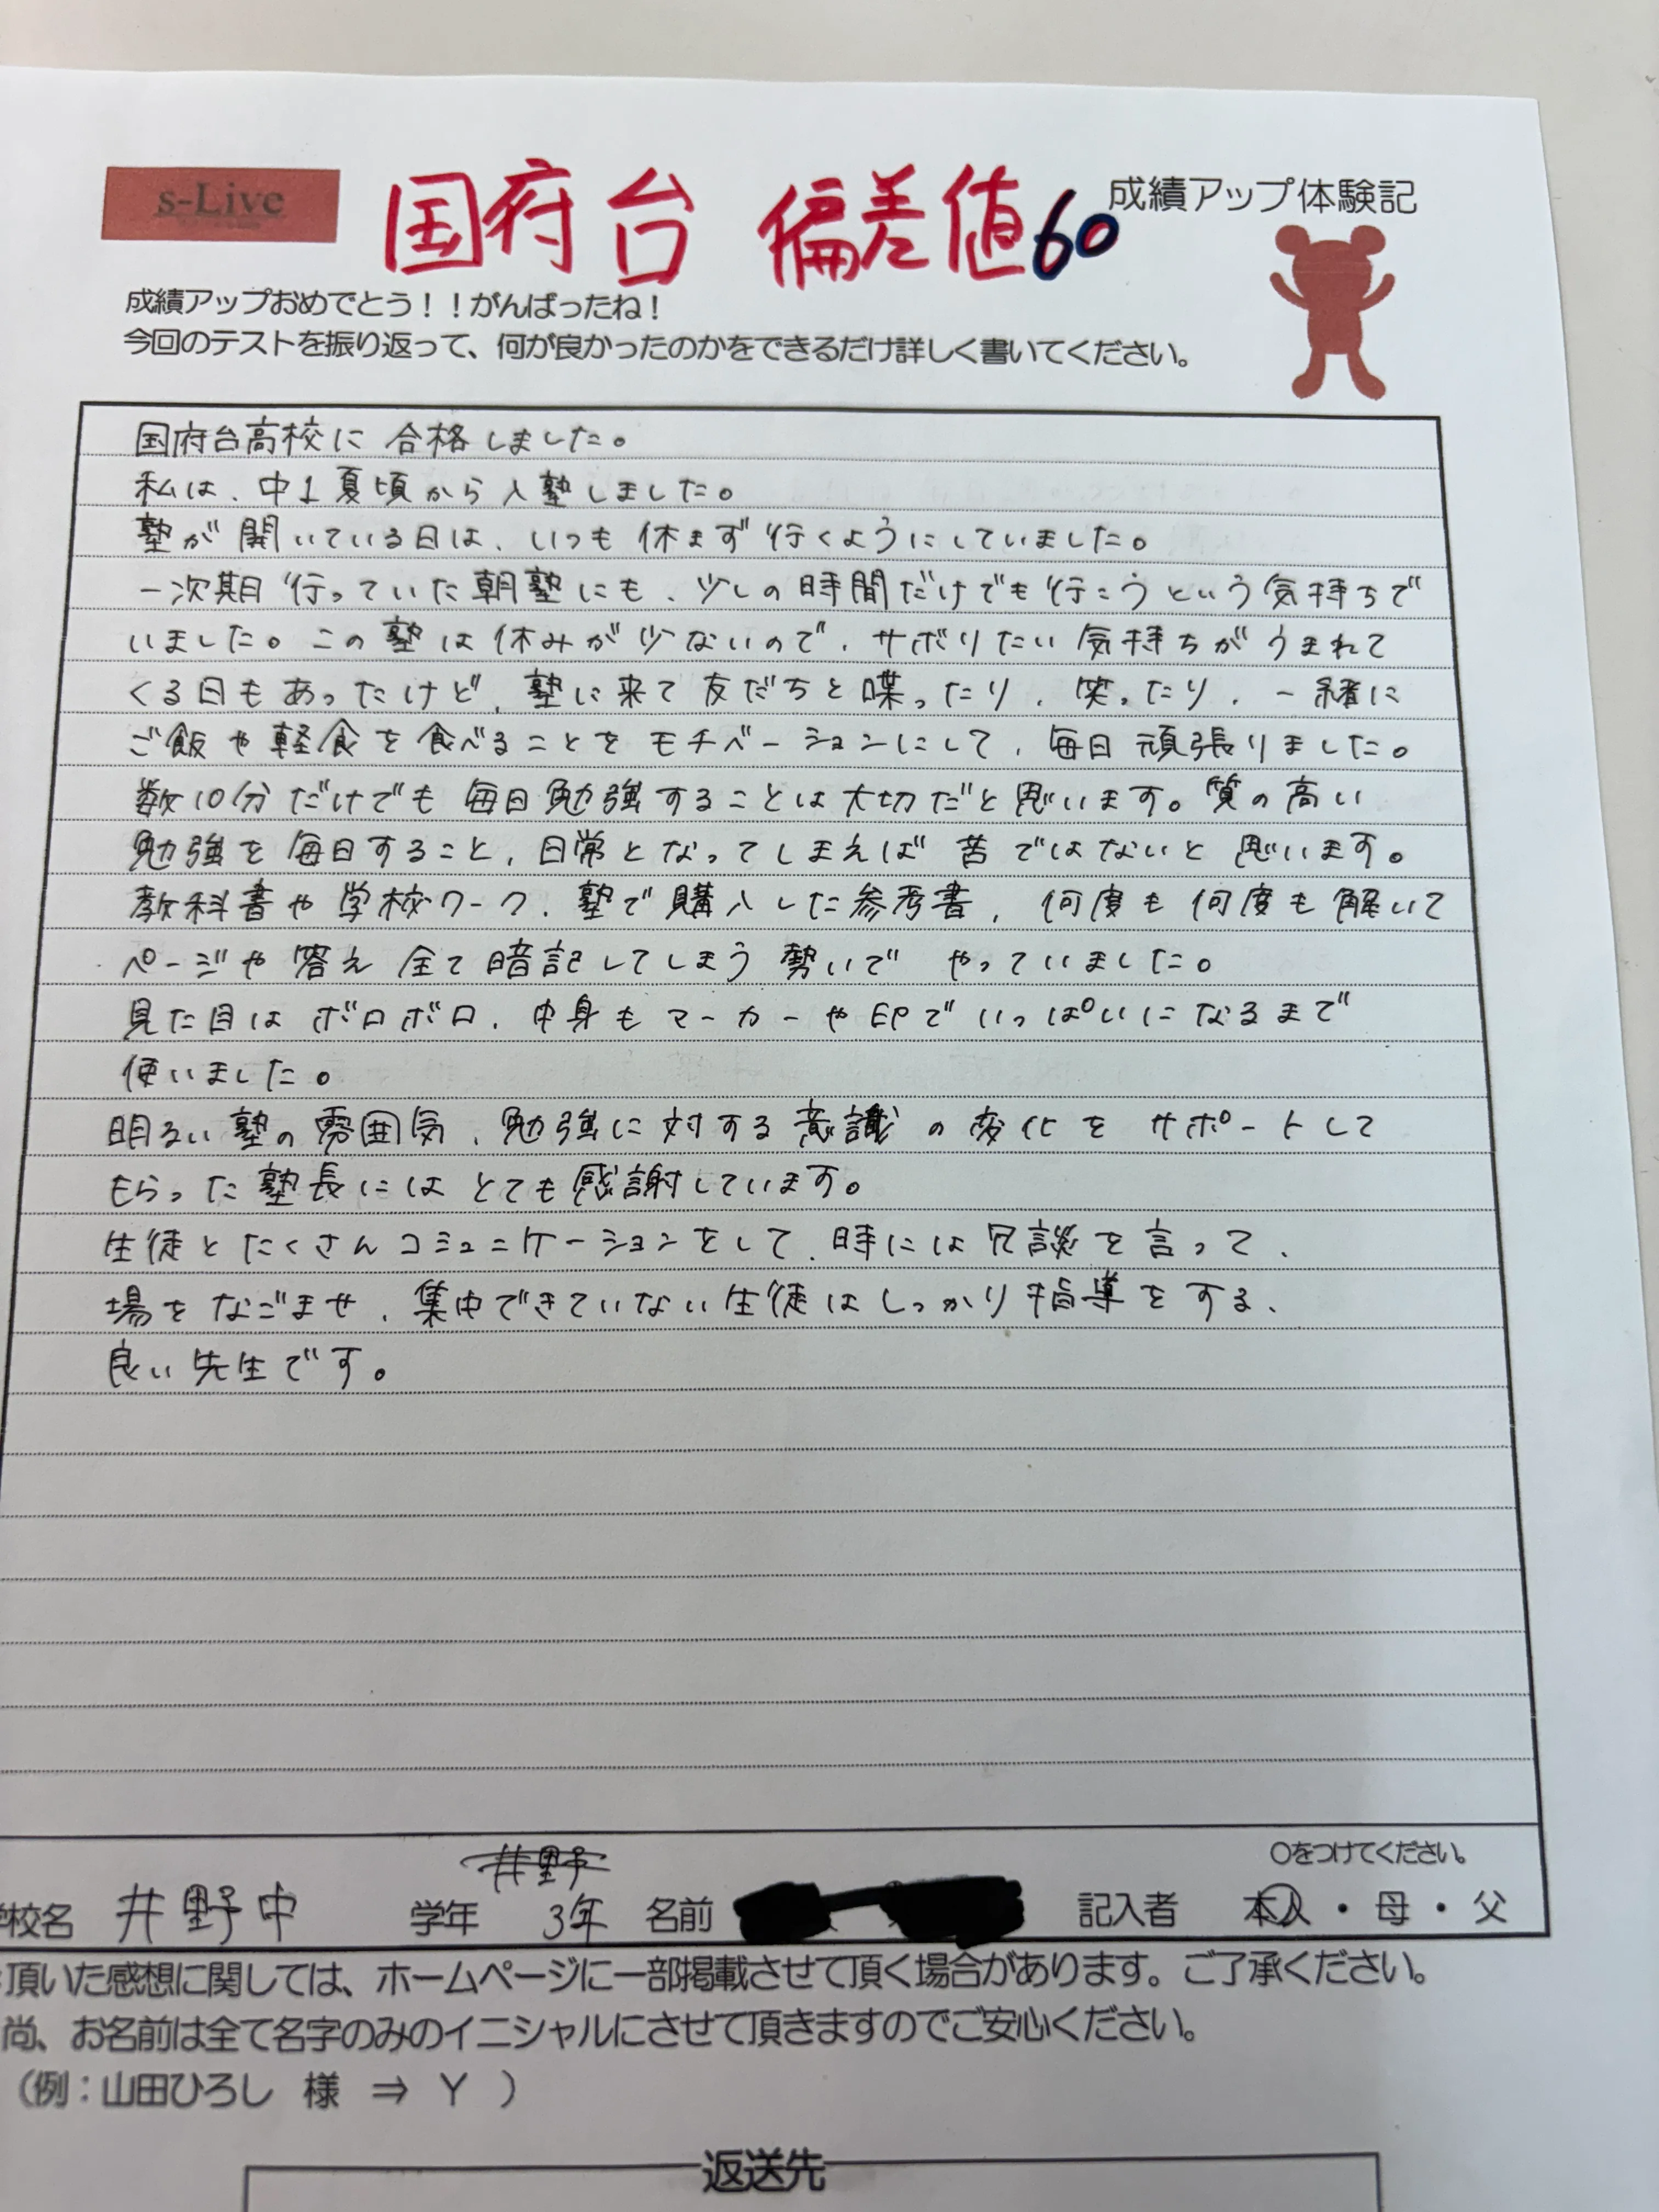 s-Live
国府台 偏差値60
成績アップ体験記
成績アップおめでとう！！がんばったね！
今回のテストを振り返って、何が良かったのかをできるだけ詳しく書いてください。
国府台高校に合格しました。
私は、中1夏頃から入塾しました。
塾が開いている日は、いつも休まず行くようにしていました。
一次期行っていた朝塾にも、少しの時間だけでも行こうという気持ちで
いました。この塾は休みが少ないので、サボりたい気持ちがうまれて
くる日もあったけど、塾に来て友だちと喋ったり、笑ったり、一緒に
ご飯や軽食を食べることをモチベーションにして、毎日頑張りました。
数10分だけでも毎日勉強することは大切だと思います。質の高い
勉強を毎日すること、日常となってしまえば苦ではないと思います。
教科書や学校ワーク、塾で購入した参考書、何度も何度も解いて
ページや答え全て暗記してしまう勢いでやっていました。
見た目はボロボロ、中身もマーカーや印でいっぱいになるまで
使いました。
明るい塾の雰囲気、勉強に対する意識の変化をサポートして
もらった塾長にはとても感謝しています。
生徒とたくさんコミュニケーションをして、時には冗談を言って、
場をなごませ、集中できていない生徒はしっかり指導をする、
良い先生です。
○をつけてください。
井野
学校名 井野中 学年 3年 名前 記入者 本人・母・父
頂いた感想に関しては、ホームページに一部掲載させて頂く場合があります。ご了承ください。
尚、お名前は全て名字のみのイニシャルにさせて頂きますのでご安心ください。
（例：山田ひろし 様 ⇒ Y ）
返送先